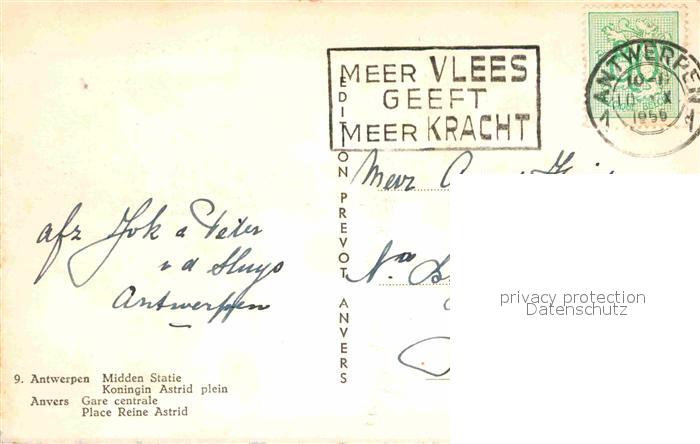 MEER VLEES
GEEFT
MEER KRACHT
ANTWERPEN
1956
EDITION PREVOT ANVERS
Mevr
afz Jok a Peter
v d Sluys
Antwerpen
9. Antwerpen Midden Statie
Koningin Astrid plein
Anvers Gare centrale
Place Reine Astrid
privacy protection
Datenschutz